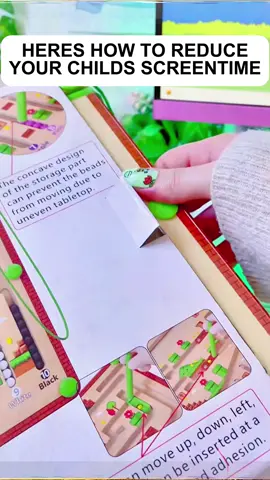 HERES HOW TO REDUCE
YOUR CHILDS SCREENTIME
The concave design
of the storage part
can prevent the beads
from moving due to
uneven tabletop.
10
Black
9
White
move up, down, left,
be inserted at a
adhesion.